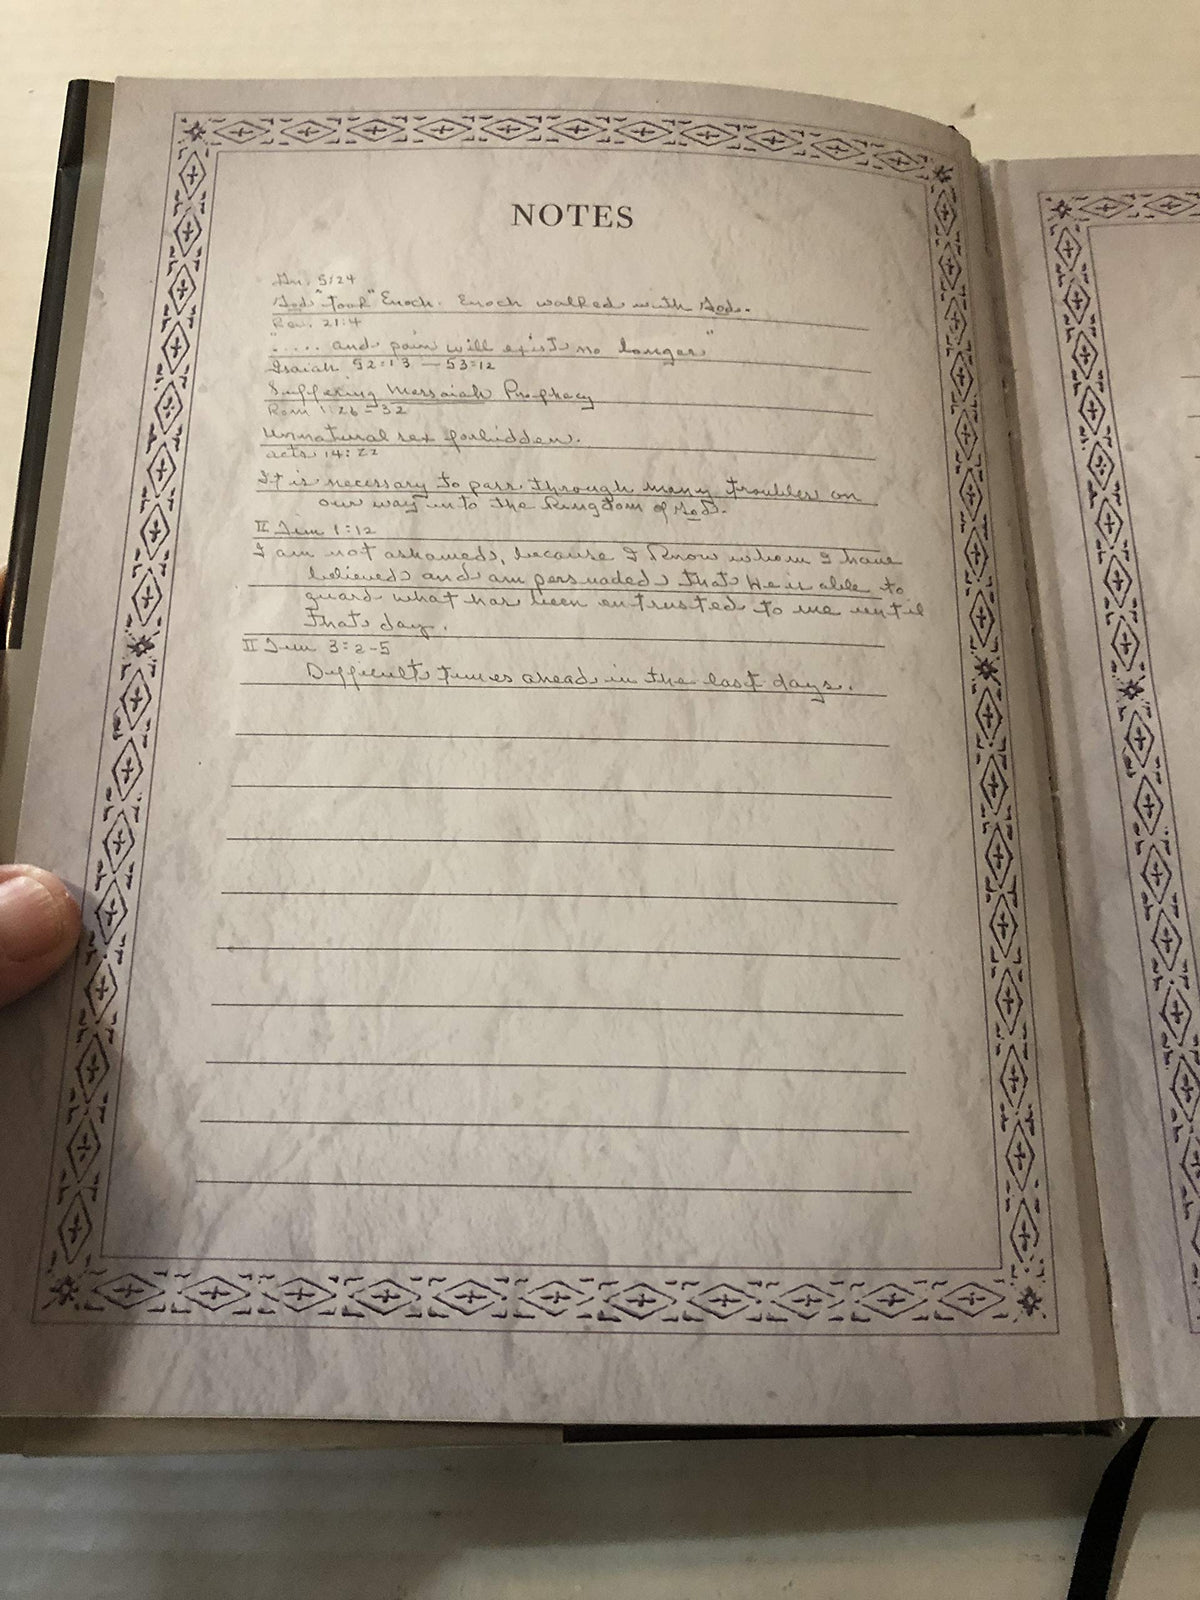 NOTES
Gn. 5:24
God "took" Enoch. Enoch walked with God.
Rev. 21:4
"..... and pain will exist no longer"
Isaiah 52:13 – 53:12
Suffering Messaiah Prophecy
Rom 1:26-32
Unnatural sex forbidden.
Acts 14:22
It is necessary to pass through many troubles on
our way into the Kingdom of God.
II Tim 1:12
I am not ashamed, because I know whom I have
believed and am persuaded that He is able to
guard what has been entrusted to me until
that day.
II Tim 3:2-5
Difficult times ahead in the last days.